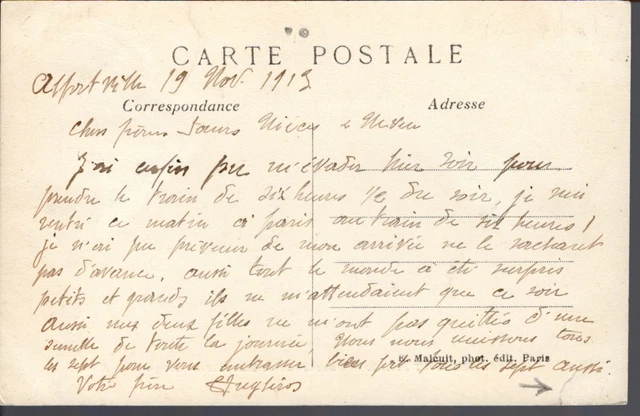 CARTE POSTALE
Alfortville 19 Nov. 1913
Correspondance
Adresse
Chers frères Sœurs Nièces e Neveu
J'ai enfin pu m'évader hier soir pour
prendre le train de dix heures du soir, je suis
rentré ce matin à paris au train de six heures!
je n'ai pu prévenir de mon arrivée ne le sachant
pas d'avance, aussi tout le monde a été surpris
petits et grands ils ne m'attendaient que ce soir
aussi mes deux filles ne m'ont pas quittés d'une
semelle de toute la journée, Nous nous unissons tous
les sept pour vous embrasser bien fort tous les sept aussi.
E. Malcuit, phot. édit. Paris
Votre